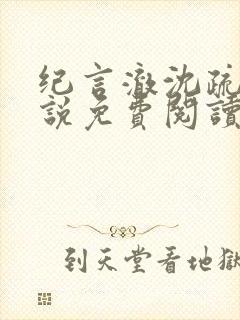 纪言澈沈疏
説免費閱讀
到天堂看地獄